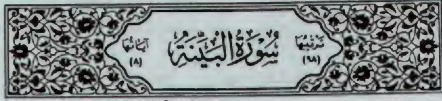 ترتيبها (٩٨) سُورَةُ البَيِّنَةِ آياتها (٨)